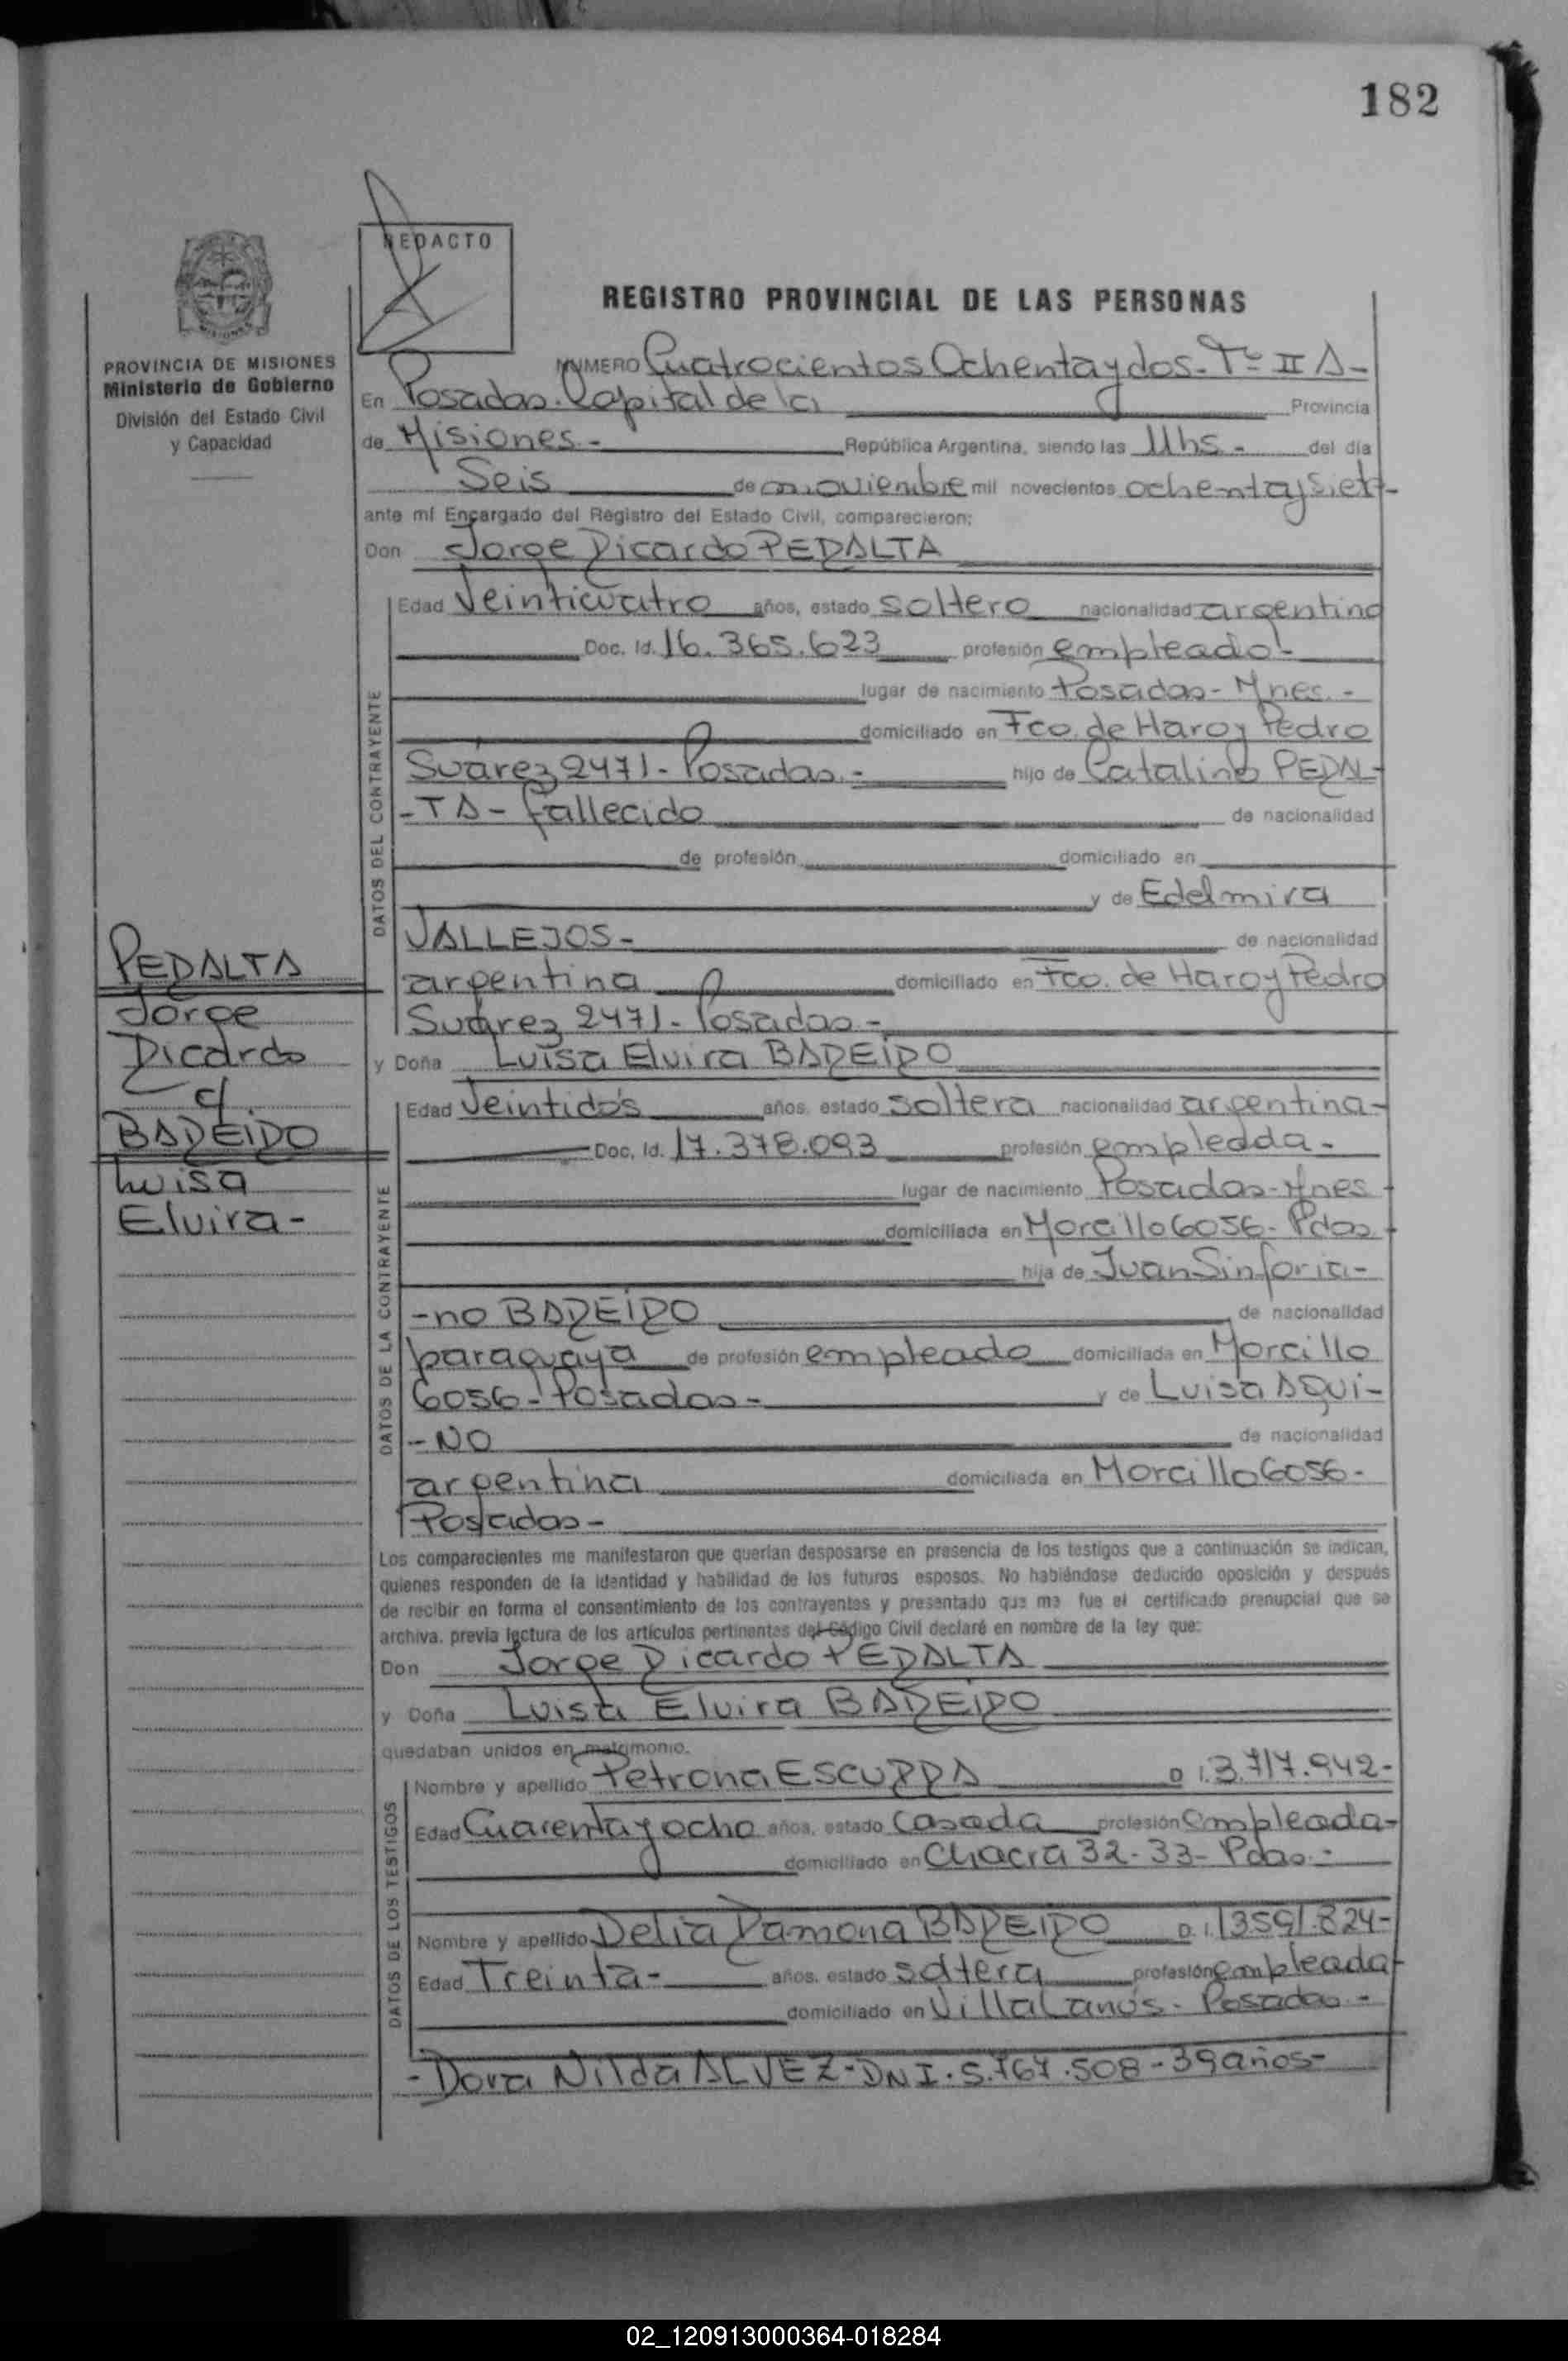 182
REDACTO
REGISTRO PROVINCIAL DE LAS PERSONAS
PROVINCIA DE MISIONES
Ministerio de Gobierno
División del Estado Civil
y Capacidad
NUMERO Cuatrocientos Ochenta y dos - Tº II A -
En Posadas. Capital de la Provincia
de Misiones - República Argentina, siendo las 11 hs - del día
Seis de noviembre mil novecientos ochenta y siete -
ante mí Encargado del Registro del Estado Civil, comparecieron:
Don Jorge Ricardo PERALTA
Edad Veinticuatro años, estado soltero nacionalidad argentino
Doc. Id. 16.365.623 profesión empleado -
lugar de nacimiento Posadas - Mnes. -
domiciliado en Fco. de Haro y Pedro
Suárez 2471 - Posadas - hijo de Catalino PERAL-
-TA - fallecido de nacionalidad
de profesión domiciliado en
y de Edelmira
VALLEJOS - de nacionalidad
argentina domiciliado en Fco. de Haro y Pedro
Suárez 2471 - Posadas -
y Doña Luisa Elvira BAREIRO
Edad Veintidós años, estado soltera nacionalidad argentina -
Doc. Id. 17.378.093 profesión empleada -
lugar de nacimiento Posadas - Mnes -
domiciliada en Morcillo 6056 - Pdas -
hija de Juan Sinforia-
-no BAREIRO de nacionalidad
paraguaya de profesión empleado domiciliada en Morcillo
6056 - Posadas - y de Luisa AQUI-
-NO de nacionalidad
argentina domiciliada en Morcillo 6056 -
Posadas -
PERALTA
Jorge
Ricardo
c/
BAREIRO
Luisa
Elvira -
DATOS DEL CONTRAYENTE
DATOS DE LA CONTRAYENTE
Los comparecientes me manifestaron que querían desposarse en presencia de los testigos que a continuación se indican,
quienes responden de la identidad y habilidad de los futuros esposos. No habiéndose deducido oposición y después
de recibir en forma el consentimiento de los contrayentes y presentado que me fue el certificado prenupcial que se
archiva, previa lectura de los artículos pertinentes del Código Civil declaré en nombre de la ley que:
Don Jorge Ricardo PERALTA
y Doña Luisa Elvira BAREIRO
quedaban unidos en matrimonio.
DATOS DE LOS TESTIGOS
Nombre y apellido Petrona ESCURRA D.I. 3.717.942 -
Edad Cuarenta y ocho años, estado casada profesión empleada -
domiciliado en Chacra 32-33 - Pdas -
Nombre y apellido Delia Ramona BAREIRO D.I. 13591.824 -
Edad Treinta - años, estado soltera profesión empleada -
domiciliado en Villa Lanús - Posadas -
- Dora Nilda ALVEZ - DNI. 5.767.508 - 39 años -
02_120913000364-018284